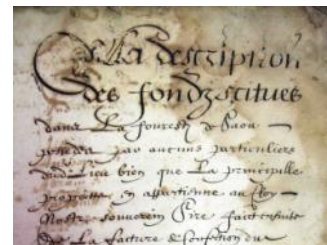 De La description
des fondz scitues
dans La fourest de Raon
par aucuns particuliers
dud. Lieu bien que La principalle
propriete en appartienne au Roy
Nostre souverein Sire faict
de La facture & confection du